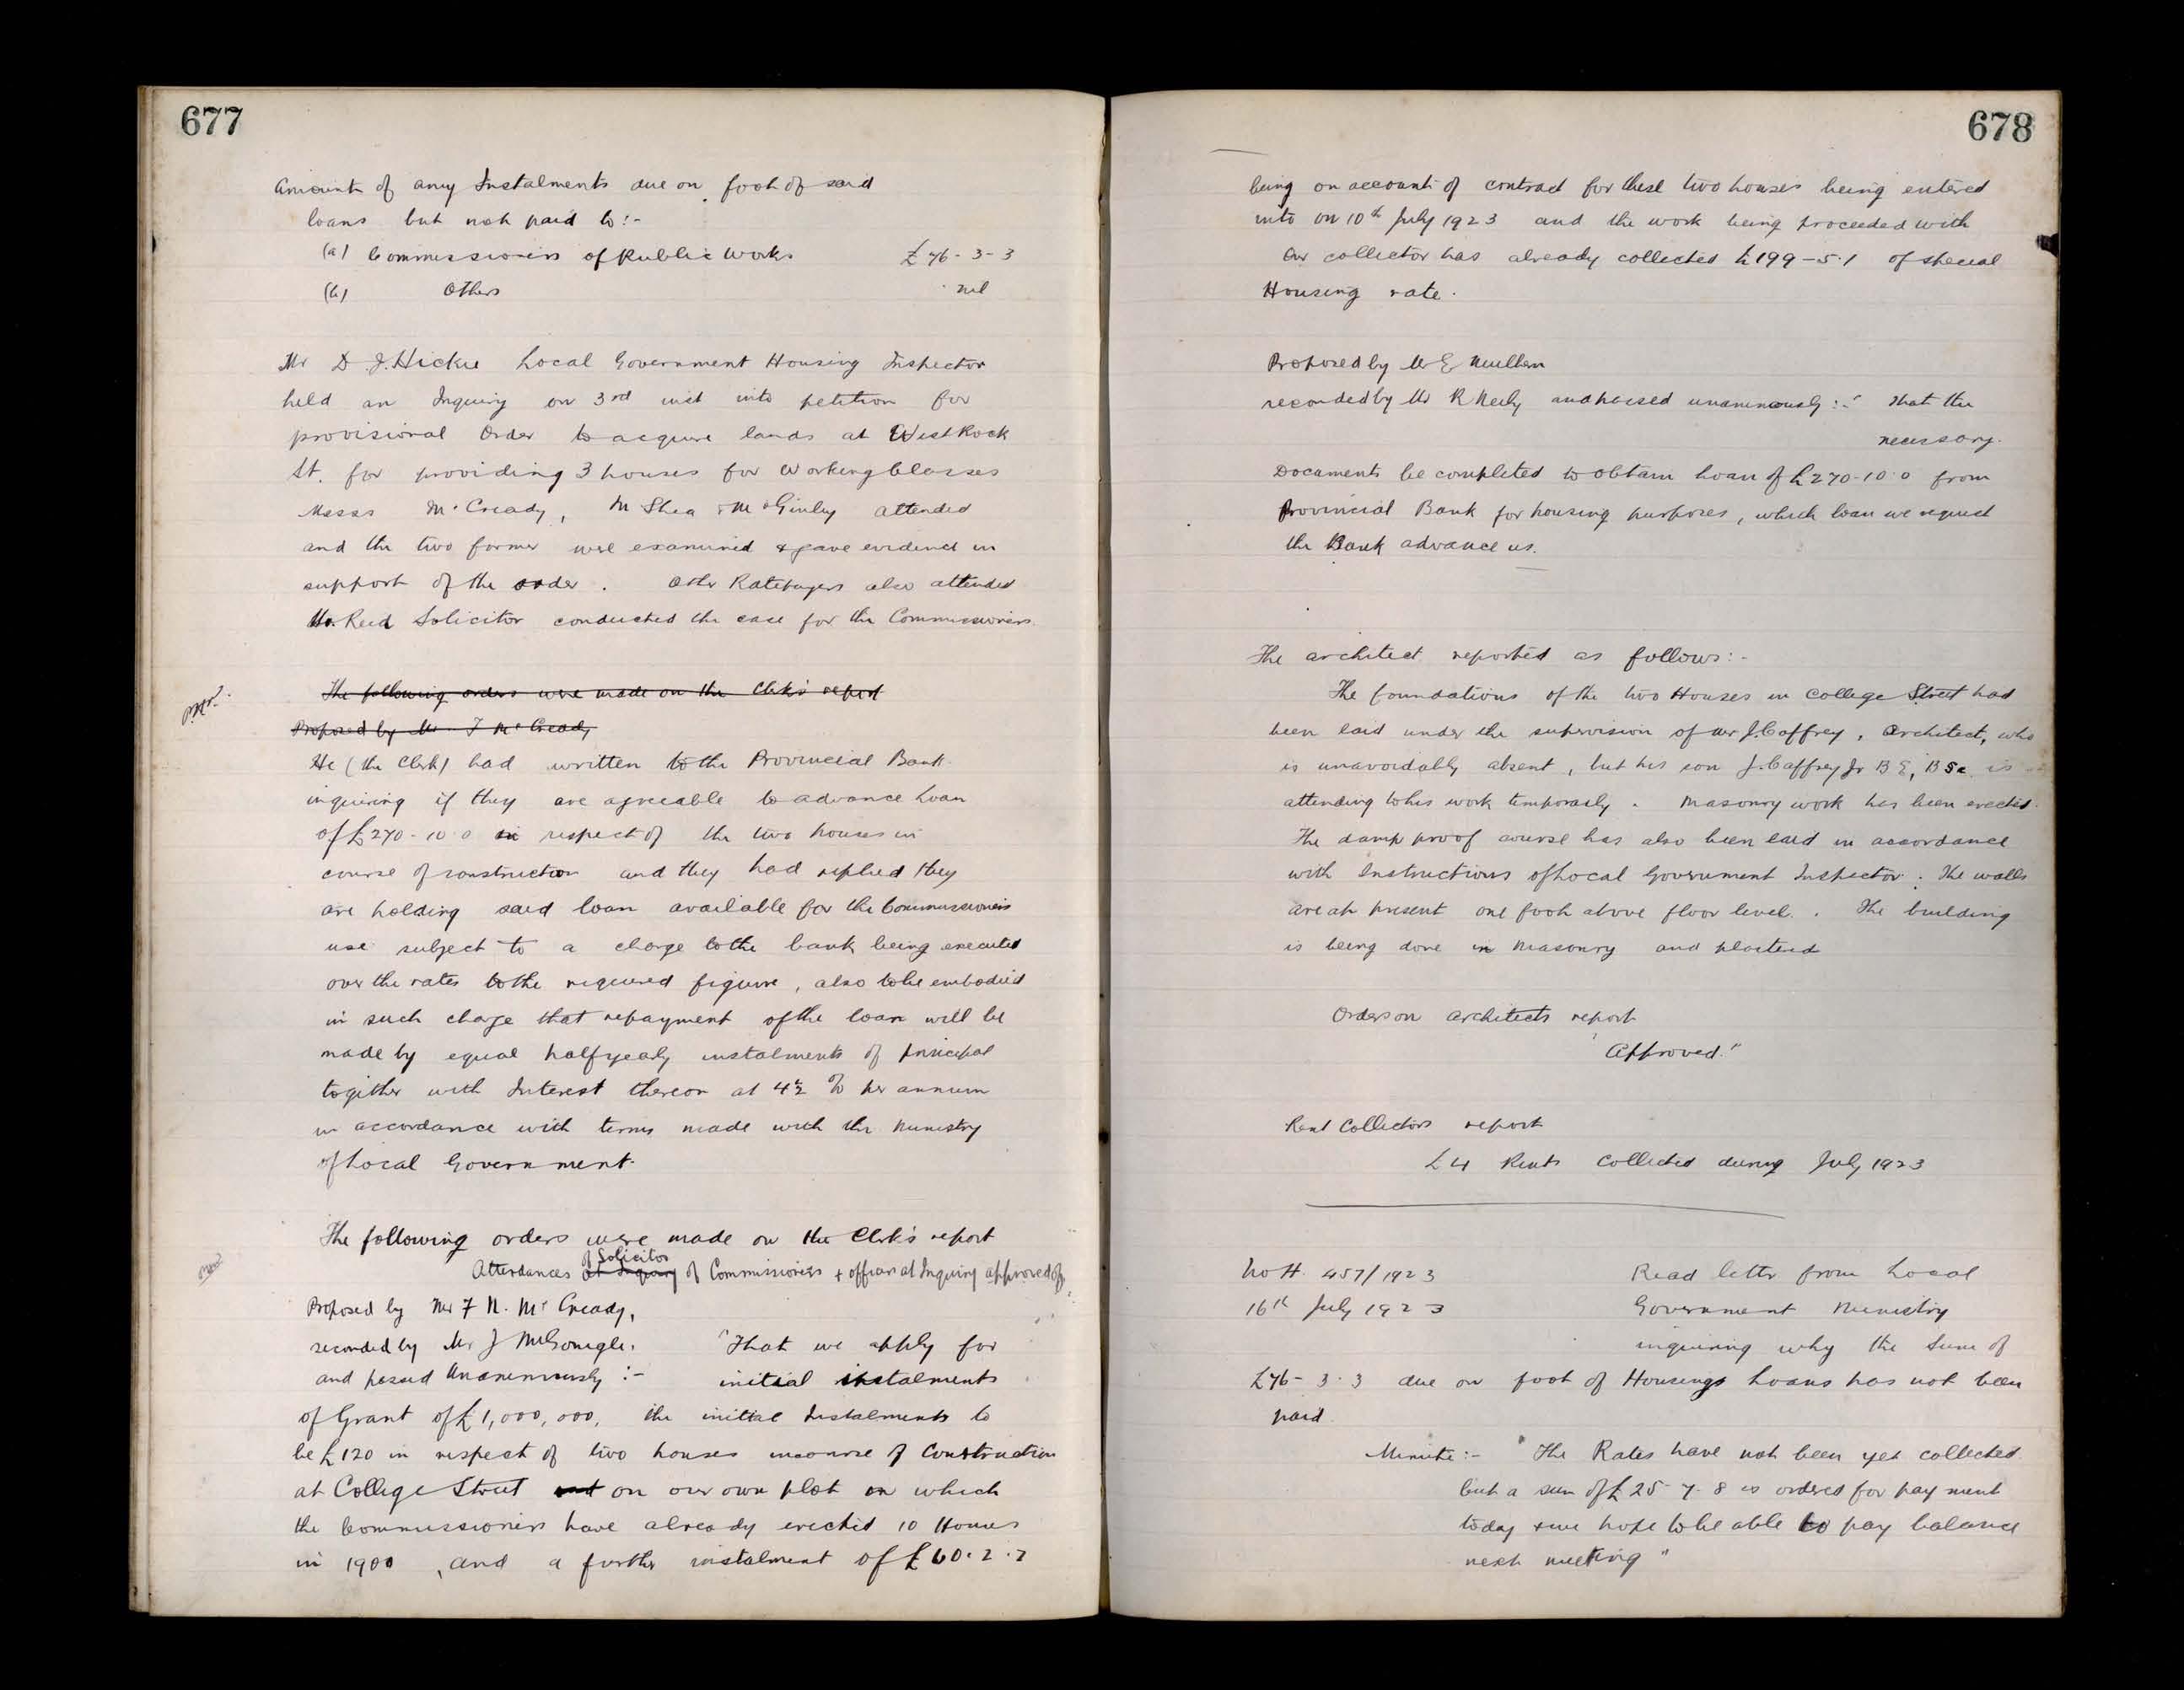 677
Amount of any Instalments due on foot of said
loans but not paid to:-
(a) Commissioners of Public Works £76-3-3
(b) Others nil
Mr D. J. Hickie Local Government Housing Inspector
held an Inquiry on 3rd inst into petition for
provisional Order to acquire lands at West Rock
St. for providing 3 houses for Working Classes
Messrs McCready, McShea & McGinley attended
and the two former were examined & gave evidence in
support of the order. Other Ratepayers also attended
Mr. Reid Solicitor conducted the case for the Commissioners.
The following orders were made on the Clerk's report
Proposed by Mr F McCready
He (the Clerk) had written to the Provincial Bank
inquiring if they are agreeable to advance Loan
of £270-10-0 in respect of the two houses in
course of construction and they had replied they
are holding said loan available for the Commissioners
use subject to a charge to the bank being executed
over the rates to the required figure, also to be embodied
in such charge that repayment of the loan will be
made by equal half yearly instalments of principal
together with Interest thereon at 4½ % per annum
in accordance with terms made with the Ministry
of Local Government.
The following orders were made on the Clerk's report
of Solicitor
Attendances at Inquiry of Commissioners + officers at Inquiry approved of.
Proposed by Mr F N. McCready,
seconded by Mr J McGonigle, "That we apply for
and passed Unanimously :- initial instalments
of Grant of £1,000,000, the initial Instalments to
be £120 in respect of two houses in course of Construction
at College Street on our own plot on which
the Commissioners have already erected 10 Houses
in 1900, and a further instalment of £60.2.7
678
being on account of contract for these two houses being entered
into on 10th July 1923 and the work being proceeded with
Our collector has already collected £199-5-1 of special
Housing rate.
Proposed by Mr E Mullen
seconded by Mr R Neely and passed unanimously:- That the
necessary
Documents be completed to obtain Loan of £270-10-0 from
Provincial Bank for housing purposes, which loan we request
the Bank advance us.
The architect reported as follows:-
The foundations of the two Houses in College Street had
been laid under the supervision of Mr J. Caffrey, Architect, who
is unavoidably absent, but his son J. Caffrey Jr B E, B Sc. is
attending to his work temporarily. Masonry work has been erected.
The damp proof course has also been laid in accordance
with Instructions of Local Government Inspector. The walls
are at present one foot above floor level. The building
is being done in Masonry and plastered
Orders on architects report
"Approved."
Rent Collectors report
£4 Rents Collected during July 1923
No H. 457/1923 Read letter from Local
16th July 1923 Government Ministry
inquiring why the sum of
£76-3-3 due on foot of Housing Loans has not been
paid.
Minute:- "The Rates have not been yet collected
but a sum of £25-7-8 is ordered for payment
today & we hope to be able to pay balance
next meeting"